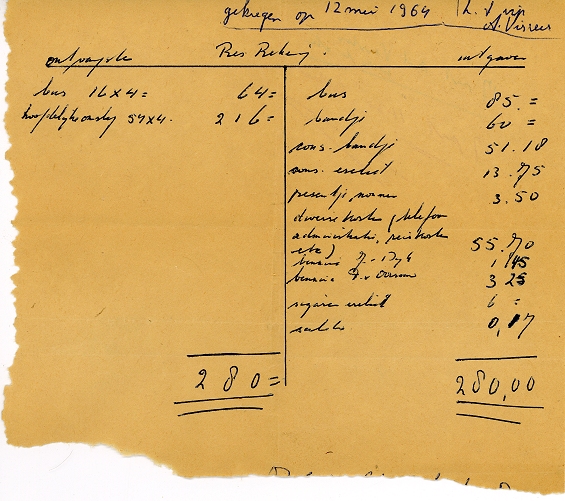 gekregen op 12 mei 1964
A. Vissers
ontvangsten Res Reken. uitgaven
bus 16x4= 64=
hoofdelijke omslag 54x4. 216=
bus 85.=
bandje 60=
cons. bandje 51.18
cons. 13.75
presentje 3.50
diverse kosten (telefoon
administratie, reiskosten
etc) 55.70
benzine 1,45
benzine 3 25
sigaren 6 =
saldo 0,17
280=
280,00